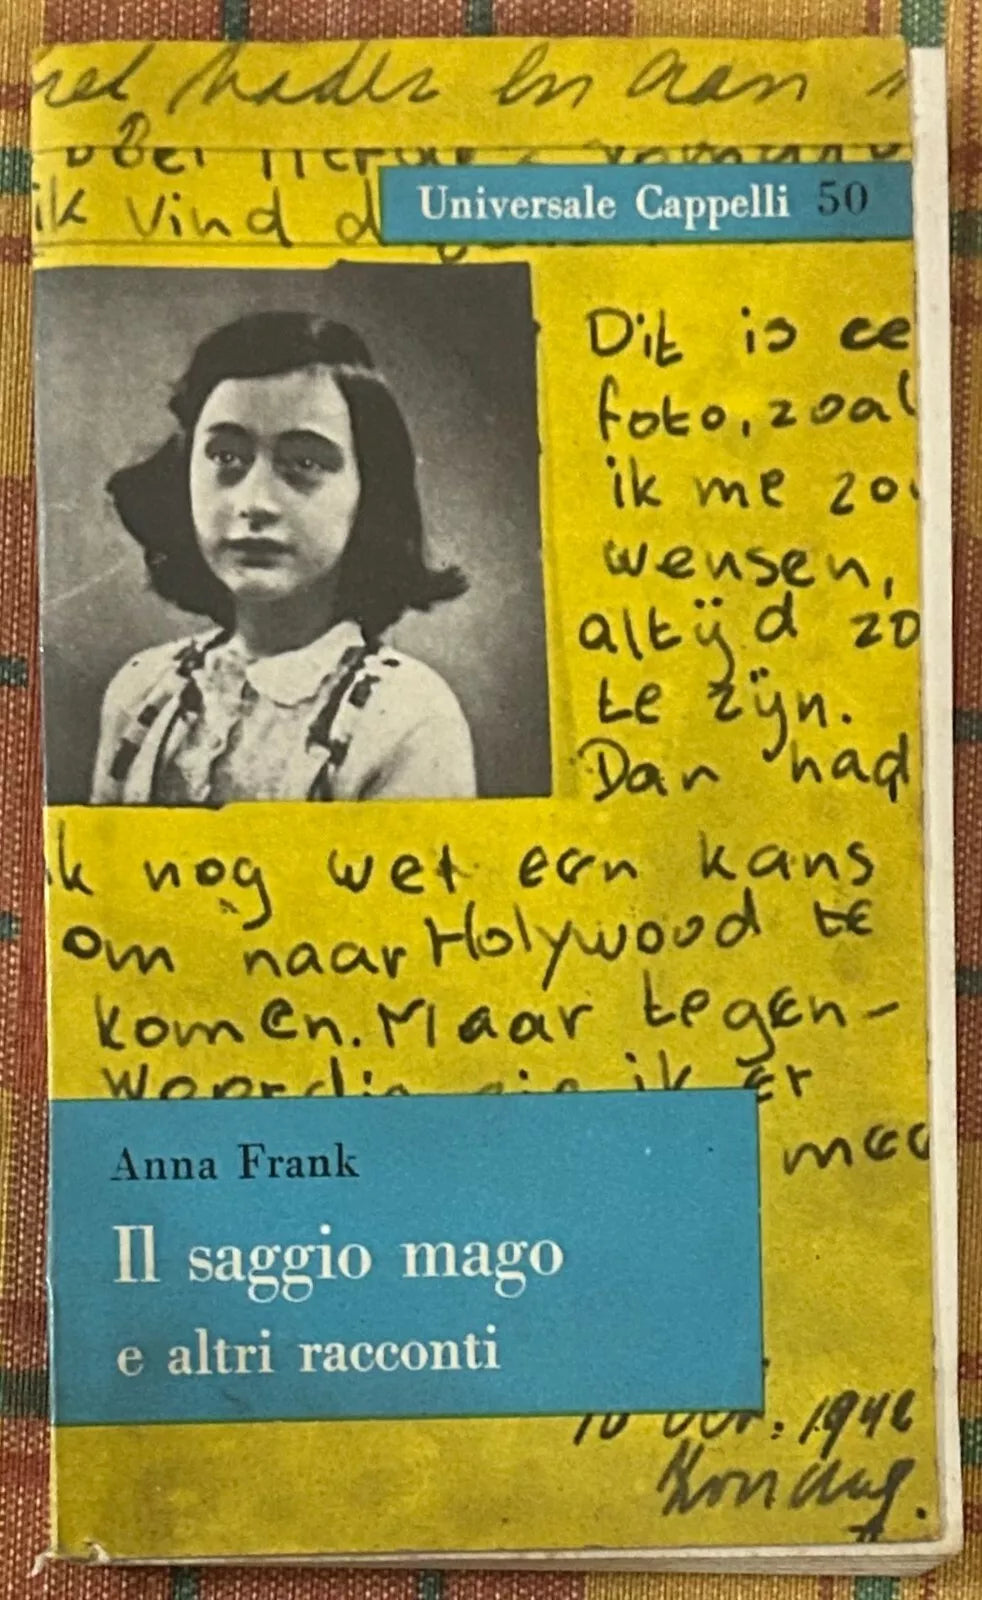 en aan
Universale Cappelli 50
ik vind d
Dit is ee
foto, zoal
ik me zo
wensen,
altijd zo
te zijn.
Dan had
ik nog wel een kans
om naar Holywood te
komen. Maar tegen-
woordig ik er
mee
Anna Frank
Il saggio mago
e altri racconti
10 Oct. 1942